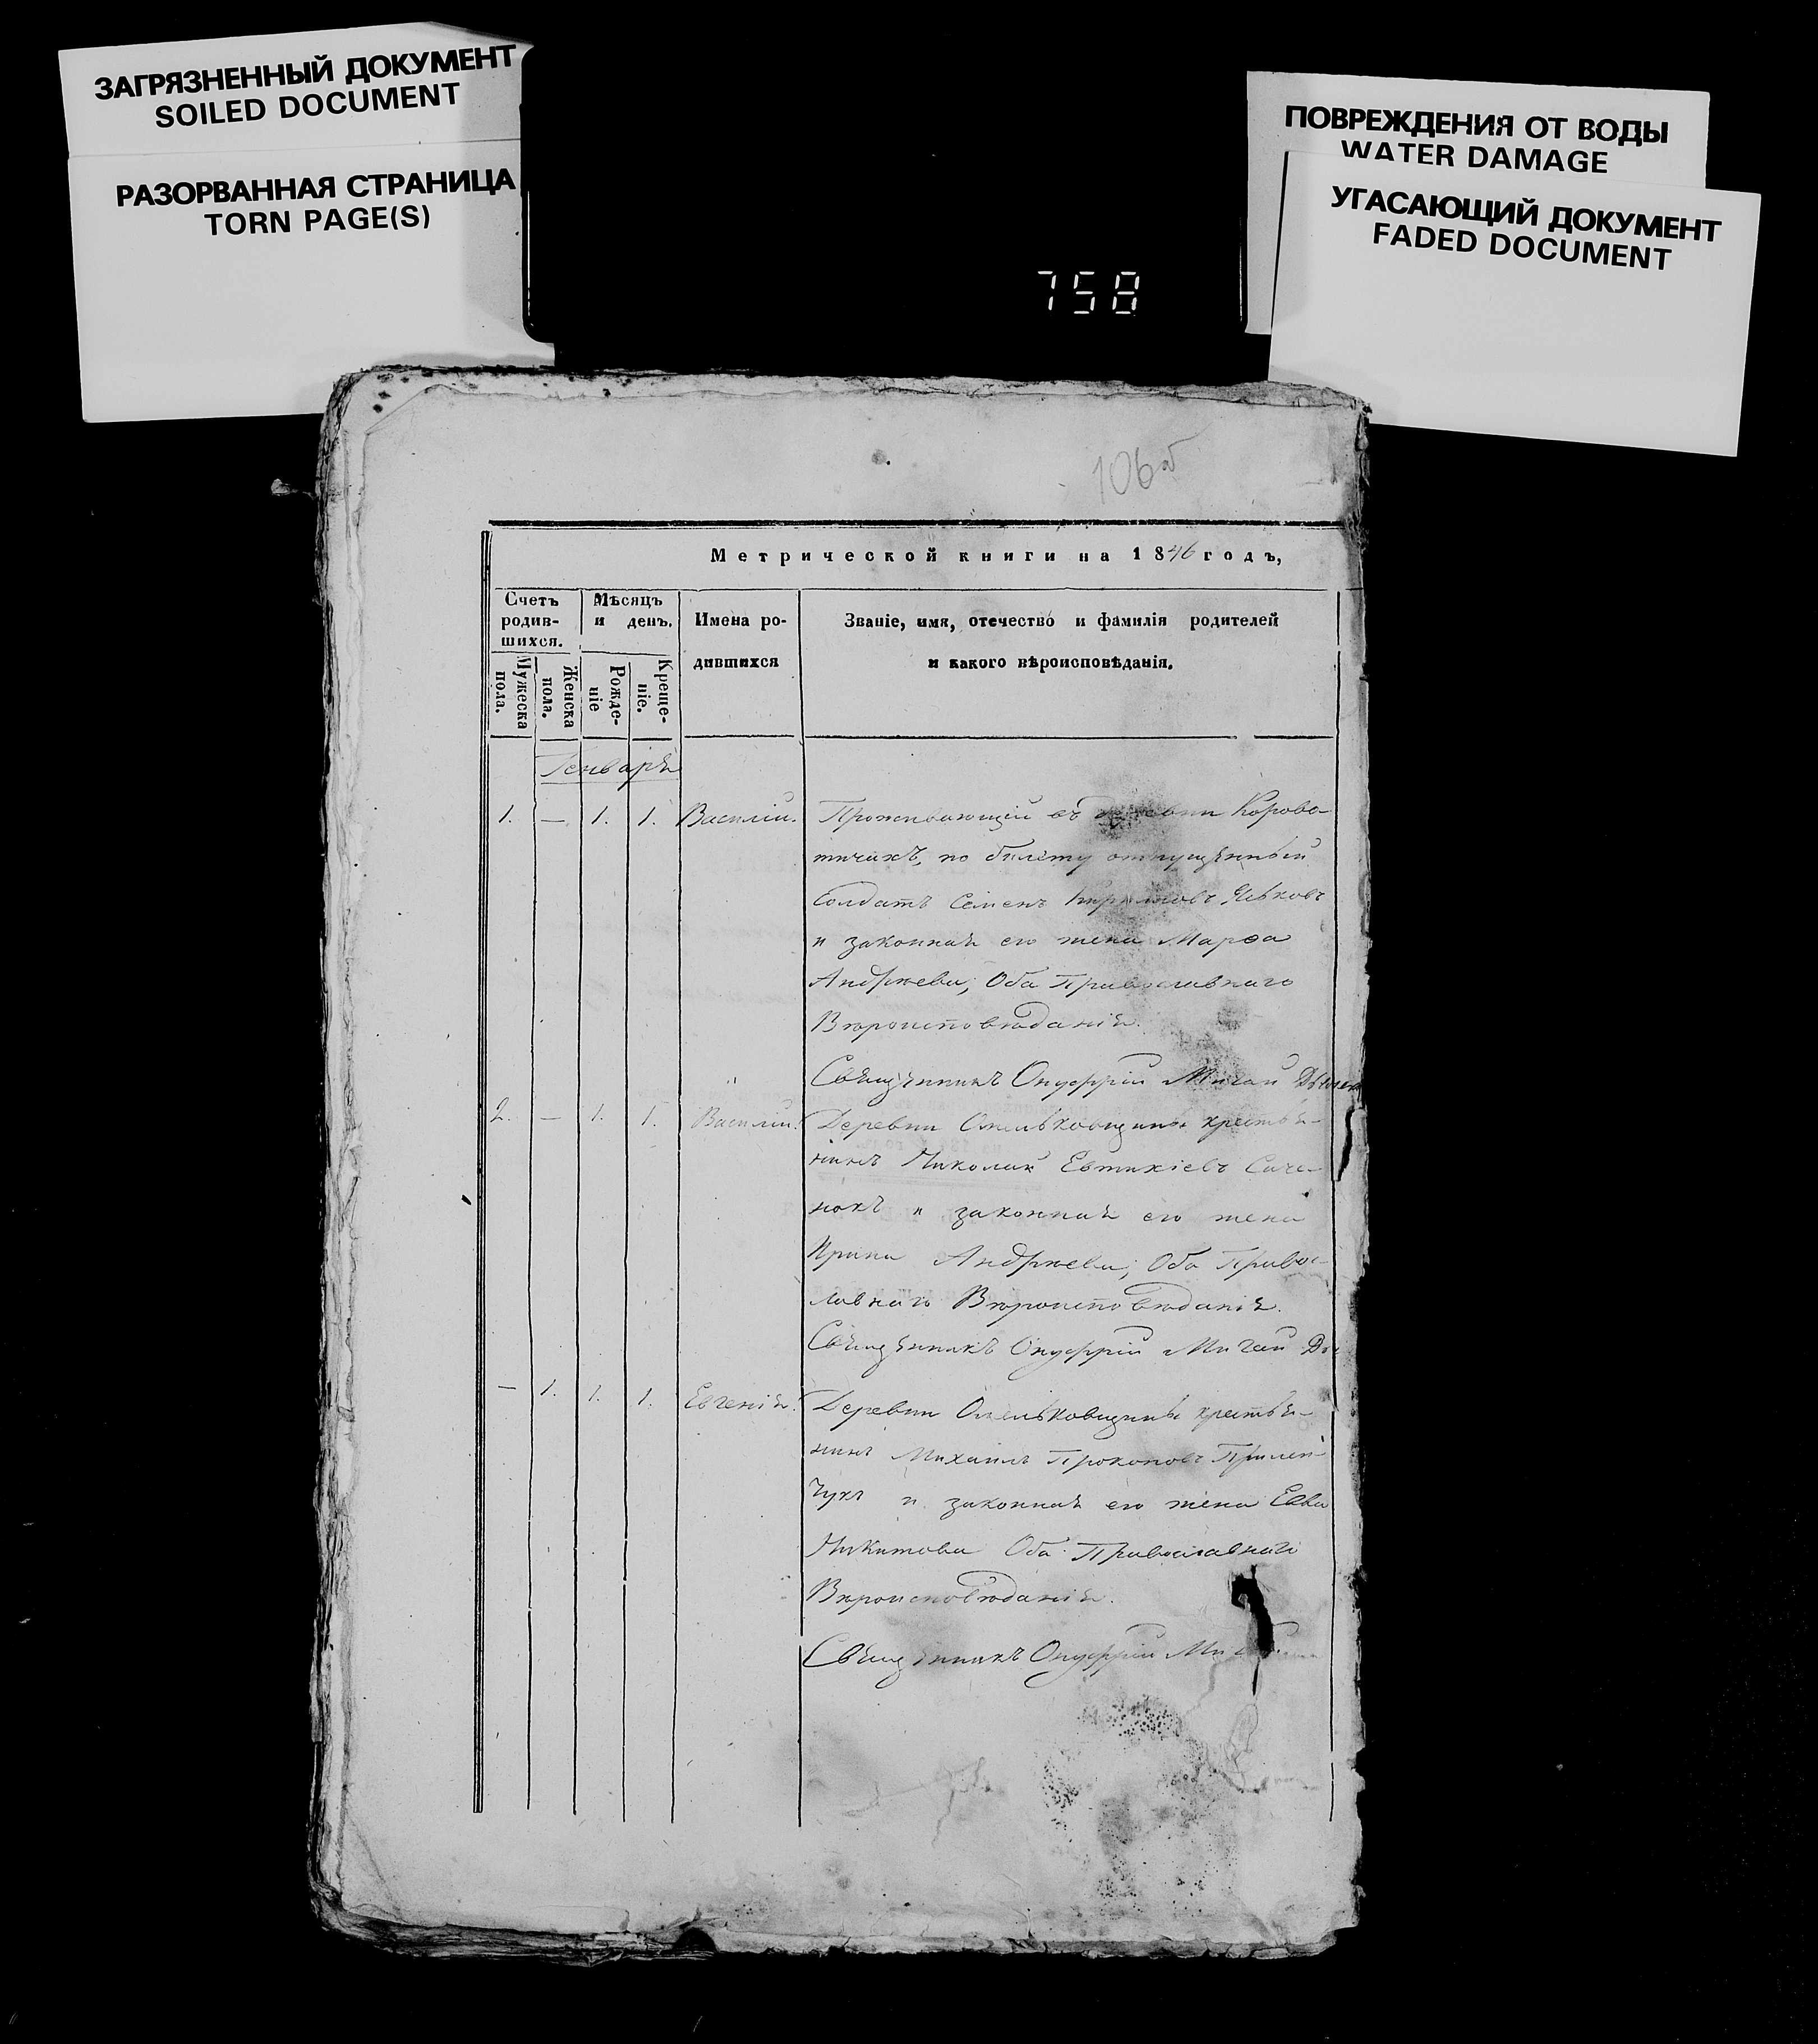 ЗАГРЯЗНЕННЫЙ ДОКУМЕНТ
SOILED DOCUMENT
РАЗОРВАННАЯ СТРАНИЦА
TORN PAGE(S)
ПОВРЕЖДЕНИЯ ОТ ВОДЫ
WATER DAMAGE
УГАСАЮЩИЙ ДОКУМЕНТ
FADED DOCUMENT
758
106
Метрической книги на 1846 годъ,
Счетъ родив-шихся.
Мѣсяцъ и день.
Имена ро-
дившихся
Званіе, имя, отечество и фамилія родителей
и какого вѣроисповѣданія.
Мужеска пола.
Женска пола.
Рожде-ніе
Креще-ніе.
Генваря
1. — 1. 1. Василій. Проживающій въ деревни Корово-
тичахъ, по билету отпущенный
Солдатъ Семенъ
и законная его жена Марѳа
Андреева; Оба Православнаго
Вѣроисповѣданія.
Священникъ Онуфрій Мигай
2. — 1. 1. Василій. Деревни Омельковщины крестья-
нинъ Николай Евтихіевъ Саче-
нокъ и законная его жена
Ирина Андреева; Оба Правос-
лавнаго Вѣроисповѣданія.
Священникъ Онуфрій Мигай
— 1. 1. 1. Евгенія. Деревни Омельковщины крестья-
нинъ Михаилъ Прокоповъ
чукъ и законная его жена Евва
Никитова Оба Православнаго
Вѣроисповѣданія.
Священникъ Онуфрій